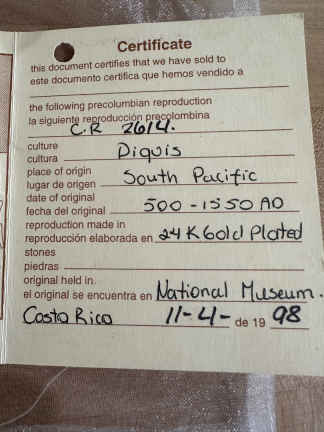 Certificate
this document certifies that we have sold to
este documento certifica que hemos vendido a
the following precolumbian reproduction
la siguiente reproducción precolombina
C.R 2614.
culture
cultura Diquis
place of origin
lugar de origen South Pacific
date of original
fecha del original 500 - 1550 AD
reproduction made in
reproducción elaborada en 24 K Gold Plated
stones
piedras
original held in.
el original se encuentra en National Museum.
Costa Rica 11-4- de 19 98